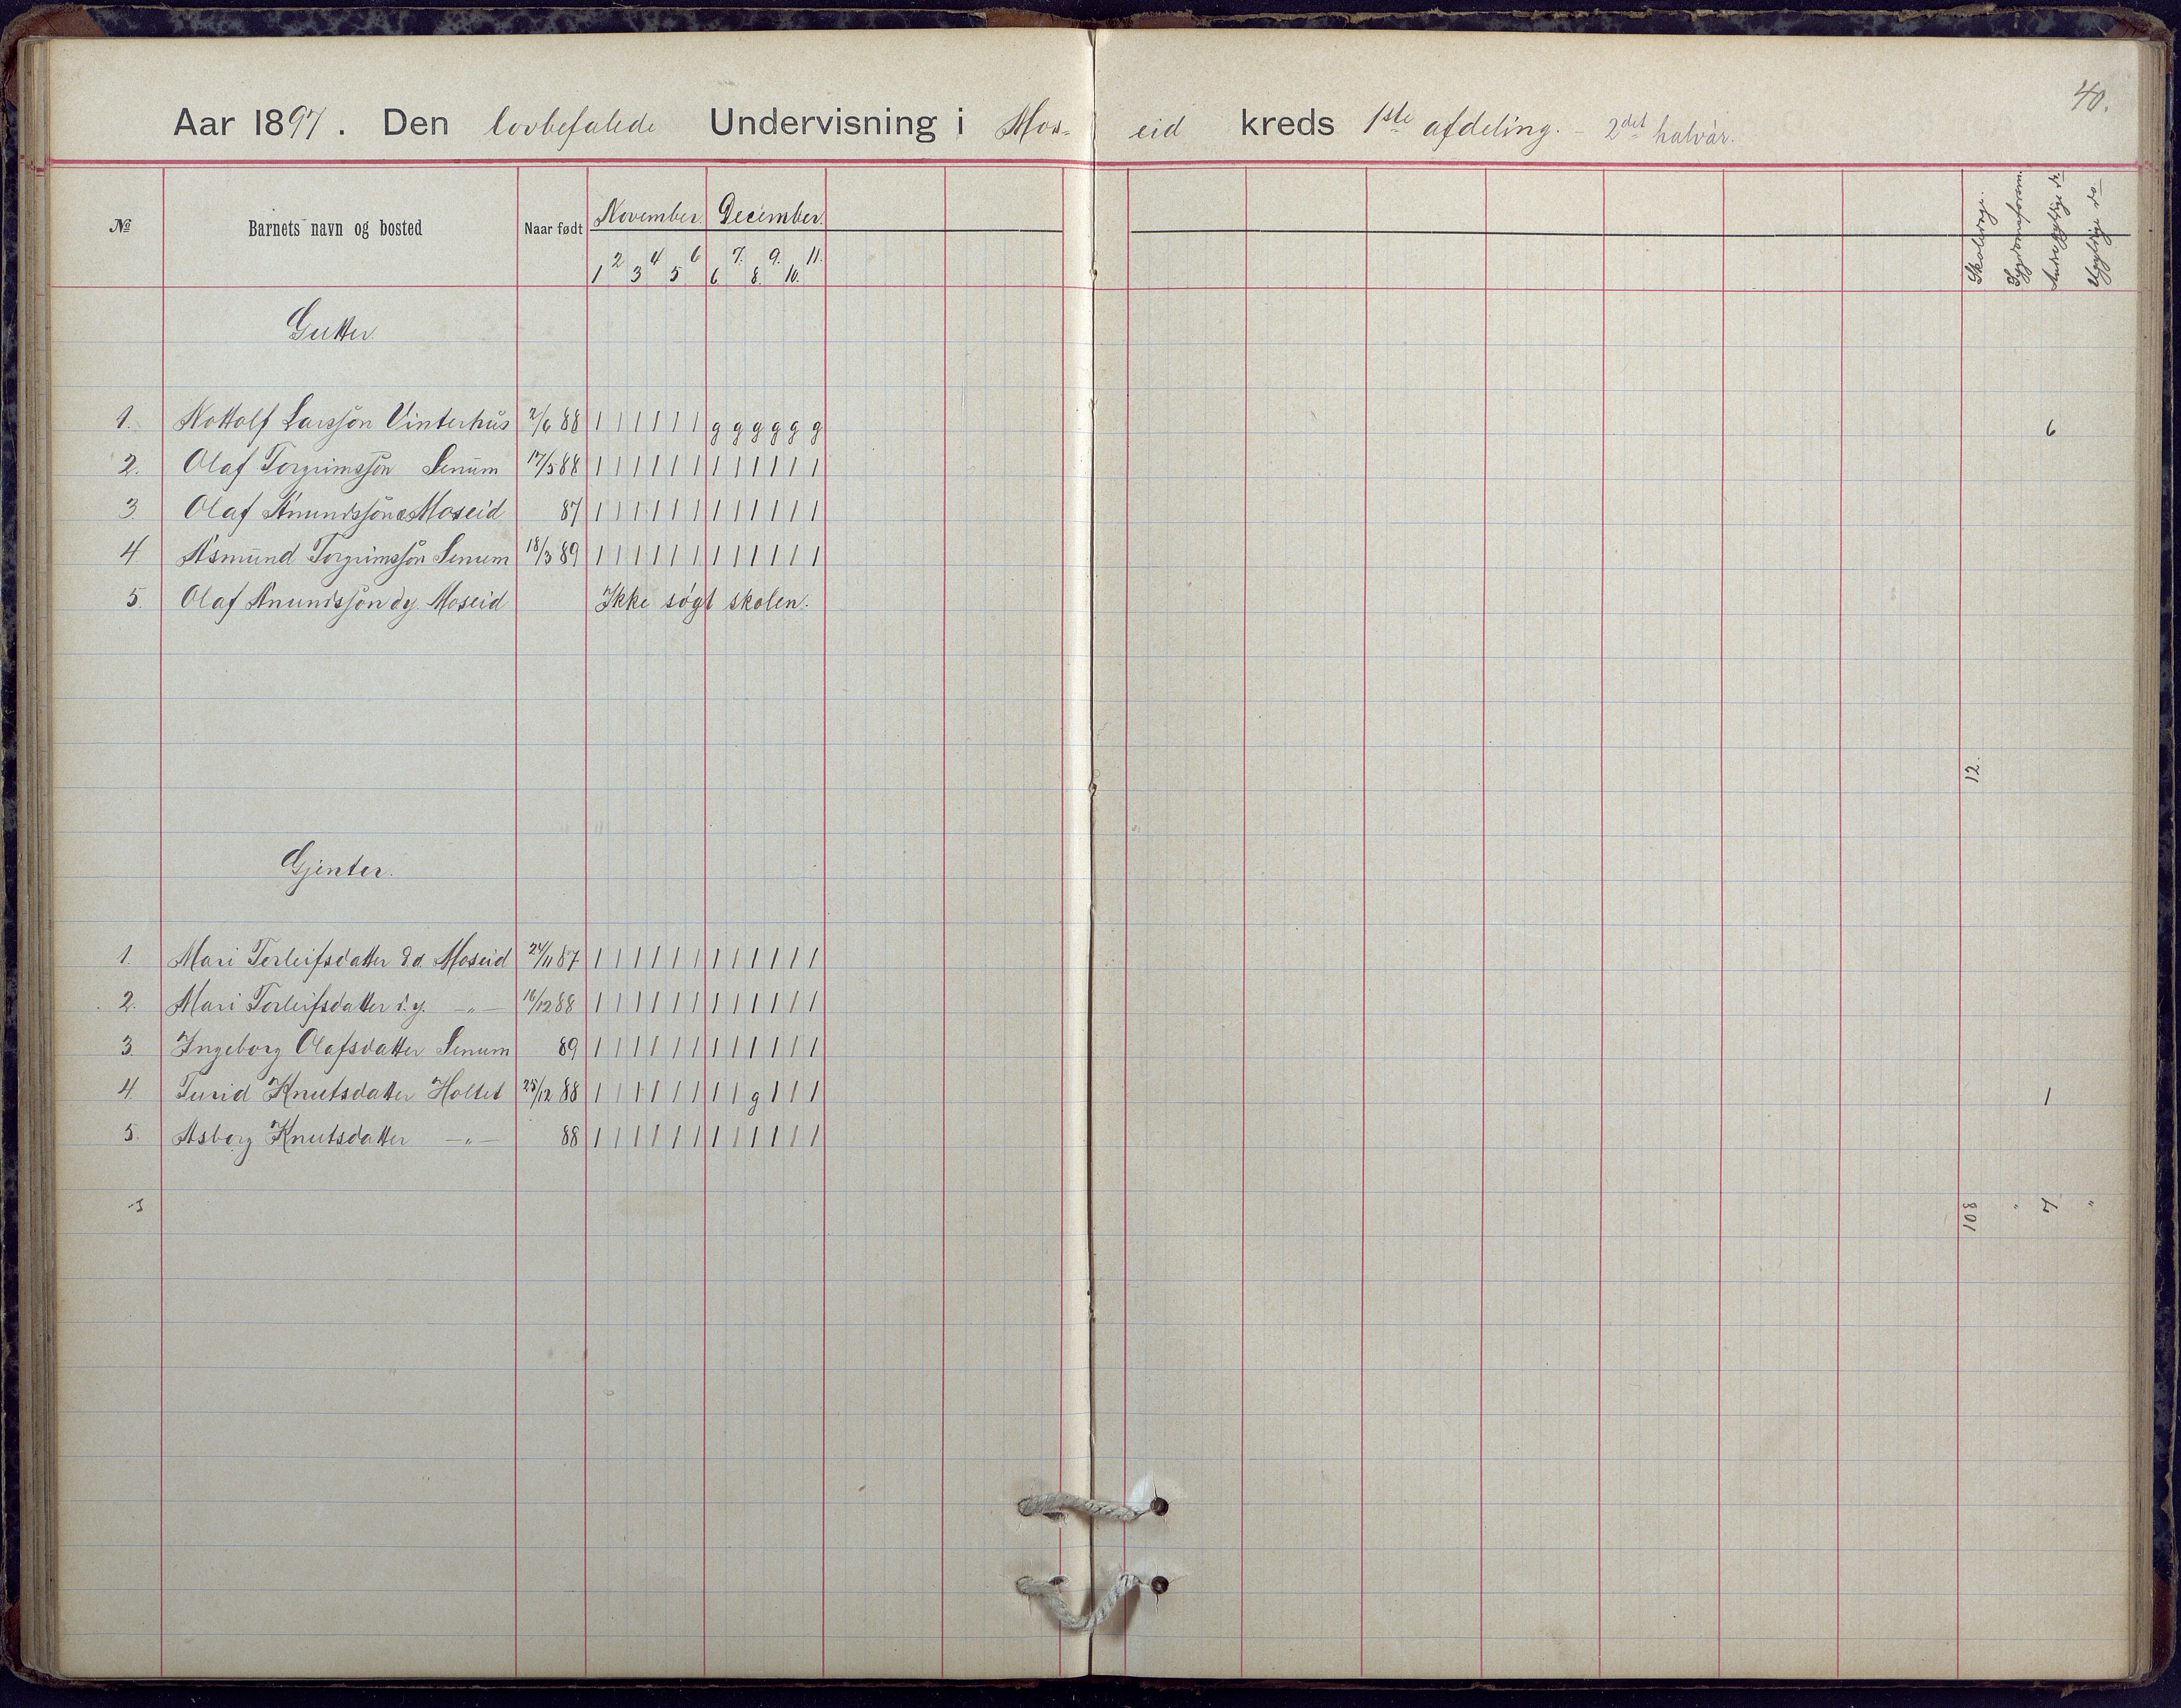 40.
Aar 1897. Den lovbefalede Undervisning i Mos- eid kreds 1ste afdeling. - 2det halvår.
№ Barnets navn og bosted Naar født November. December. Skoledage. Sygdomsforsøm. Andre gyldige do Ugyldige do
1 2 3 4 5 6 6 7. 8. 9. 10. 11.
Gutter
1. Nottolf Larssjon Vinterhus 2/6 88 1 1 1 1 1 1 g g g g g g 6
2. Olaf Torgrimssjon Senum 17/5 88 1 1 1 1 1 1 1 1 1 1 1 1
3. Olaf Anundssjon Moseid 87 1 1 1 1 1 1 1 1 1 1 1 1
4 Asmund Torgrimssjon Senum 18/3 89 1 1 1 1 1 1 1 1 1 1 1 1
5. Olaf Anundssjon dy. Moseid Ikke søgt skolen.
12.
Gjenter.
1. Mari Terleifsdatter d.o. Moseid 24/11 87 1 1 1 1 1 1 1 1 1 1 1 1
2. Mari Torleifsdatter d.y. -"- 16/12 88 1 1 1 1 1 1 1 1 1 1 1 1
3. Ingeborg Olafsdatter Senum 89 1 1 1 1 1 1 1 1 1 1 1 1
4. Turid Knutsdatter Holtet 28/12 88 1 1 1 1 1 1 1 1 g 1 1 1 1
5. Asborg Knutsdatter -"- 88 1 1 1 1 1 1 1 1 1 1 1 1
108 " 7 "